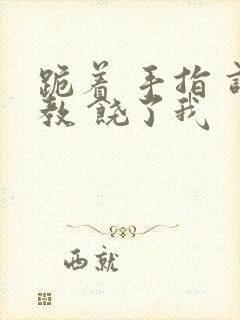 跪着 手指
教 饶了我
西就